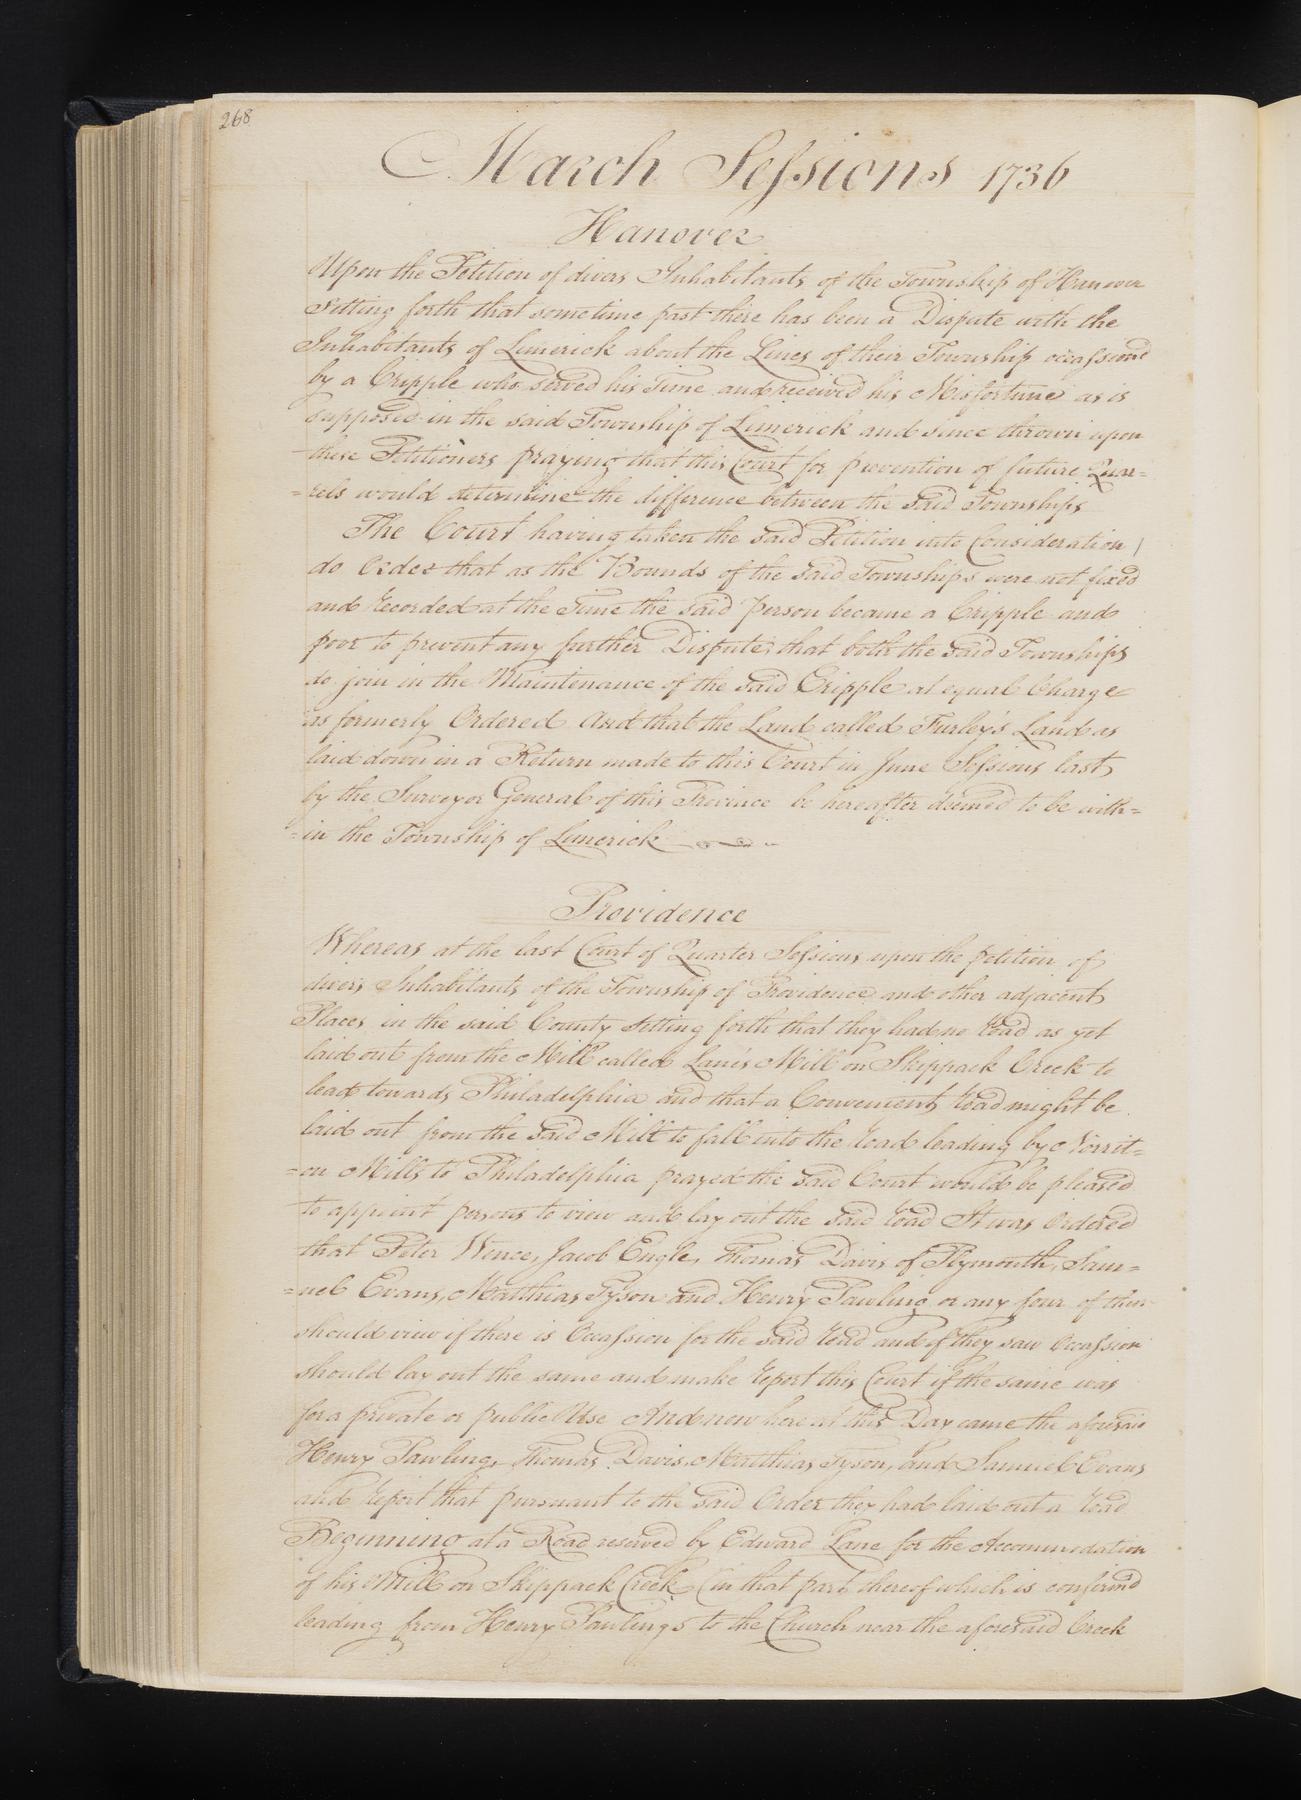 268
March Sessions 1736
Hanover
Upon the Petition of divers Inhabitants of the Township of Hanover
setting forth that sometime past there has been a Dispute with the
Inhabitants of Limerick about the Lines of their Township occassiond
by a Cripple who served his Time and received his Misfortune as is
supposed in the said Township of Limerick and since thrown upon
these Petitioners praying that this Court for prevention of future Quar=
=rels would determine the difference between the said Townships
The Court having taken the said Petition into Consideration
do Order that as the Bounds of the said Townships were not fixed
and Recorded at the Time the said person became a Cripple and
poor to prevent any further Dispute, that both the said Townships
do join in the Maintenance of the said Cripple at equal Charge
as formerly Ordered And that the Land called Furley's Land as
laid down in a Return made to this Court in June Sessions last
by the Surveyor General of this Province be hereafter deemed to be with=
=in the Township of Limerick
Providence
Whereas at the last Court of Quarter Sessions upon the petition of
divers Inhabitants of the Township of Providence and other adjacent
Places in the said County setting forth that they had no Road as yet
laid out from the Mill called Lane's Mill on Skippack Creek to
lead towards Philadelphia and that a Convenient Road might be
laid out from the said Mill to fall into the road leading by Norrit=
=on Mills to Philadelphia prayed the said Court would be pleased
to appoint persons to view and lay out the said Road It was Ordered
that Peter Wence, Jacob Engle, Thomas Davis of Plymouth, Sam=
=uel Evans, Matthias Tyson and Henry Pawling or any four of them
should view if there is Occassion for the said Road and if they saw Occassion
should lay out the same and make Report this Court if the same was
for a private or public Use And now here at this Day came the aforesaid
Henry Pawling, Thomas Davis, Matthias Tyson, and Samuel Evans
and Report that pursuant to the said Order they had laid out a Road
Beginning at a Road reserved by Edward Lane for the Accommodation
of his Mill on Skippack Creek (in that part thereof which is confirmd
leading from Henry Pawlings to the Church near the aforesaid Creek